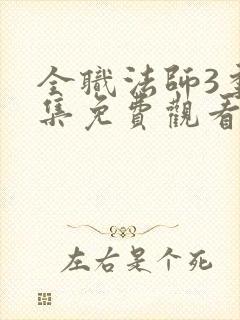 全職法師3
集免費觀看
左右是个死